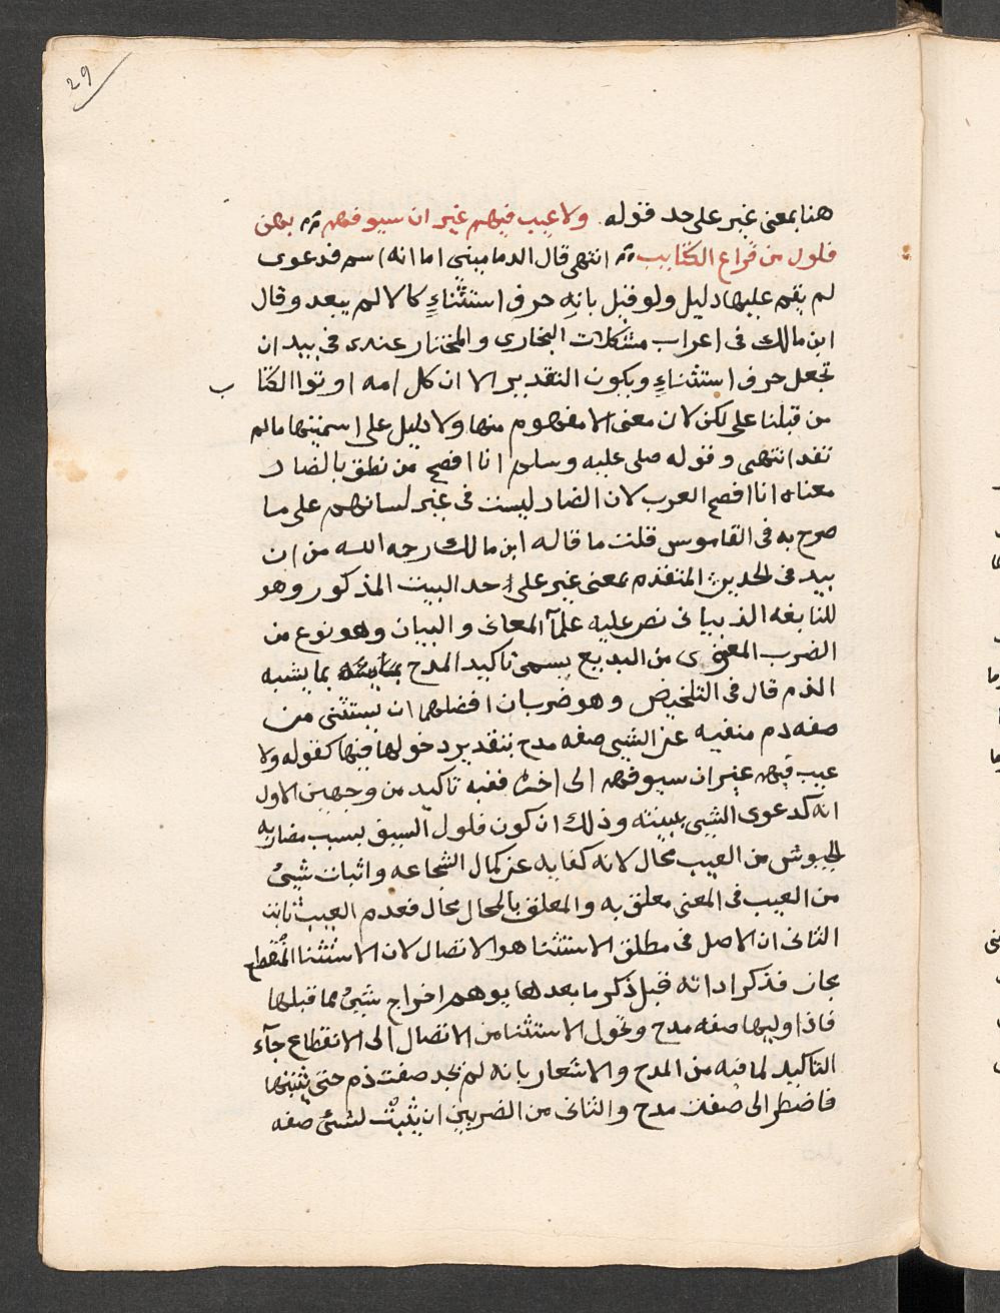 29
هنا بمعنى غير على حد قوله ولا عيب فيهم غير ان سيوفهم بهن
فلول من قراع الكتايب انتهى قال الدماميني اما انها اسم فدعوى
لم يقم عليها دليل ولو قيل بانه حرف استثناءٍ كالا لم يبعد وقال
ابن مالك فى اعراب مشكلات البخارى والمختار عندى فى بيد ان
تجعل حرف استثناءٍ ويكون التقدير الا ان كل امه اوتوا الكتاب
من قبلنا على لكن لان معنى الا مفهوم منها ولا دليل على اسميتها مالم
تفد انتهى وقوله صلى عليه وسلم انا افصح من نطق بالضاد
معناه انا افصح العرب لان الضاد ليست فى غير لسانهم على ما
صرح به فى القاموس قلت ما قاله ابن مالك رحه الله من ان
بيد فى الحديث المتقدم بمعنى غير على حد البيت المذكور وهو
للنابغه الذبيانى نص عليه علمآ المعانى والبيان وهو نوع من
الضرب المعنوى من البديع يسمى تاكيد المدح بما يشبه
الذم قال فى التلخيص وهو ضربان افضلهما ان يستثنى من
صفه ذم منفيه عن الشيى صفه مدح بتقدير دخولها فيها كقوله ولا
عيب فيهم غير ان سيوفهم الى اخره ففيه تاكيد من وجهين الاول
انه كدعوى الشيى ببينته وذلك ان كون فلول السيف بسبب مضاربه
الجيوش من العيب محال لانه كنايه عن كمال الشجاعه واثبات شيىٔ
من العيب فى المعنى معلق به والمعلق بالمحال محال فعدم العيب ثابت
الثانى ان الاصل فى مطلق الاستثنا هو الاتصال لان الاستثنا المنقطع
مجاز فذكر اداته قبل ذكر ما بعدها يوهم اخراج شيىٔ مما قبلها
فاذا وليها صفه مدح وتحول الاستثنا من الاتصال الى الانقطاع جآء
التاكيد لما فيه من المدح والاشعار بانه لم يجد صفت ذم حتى يثبتها
فاضطر الى صفت مدح والثانى من الضربين ان يثبت لشىٔ صفه